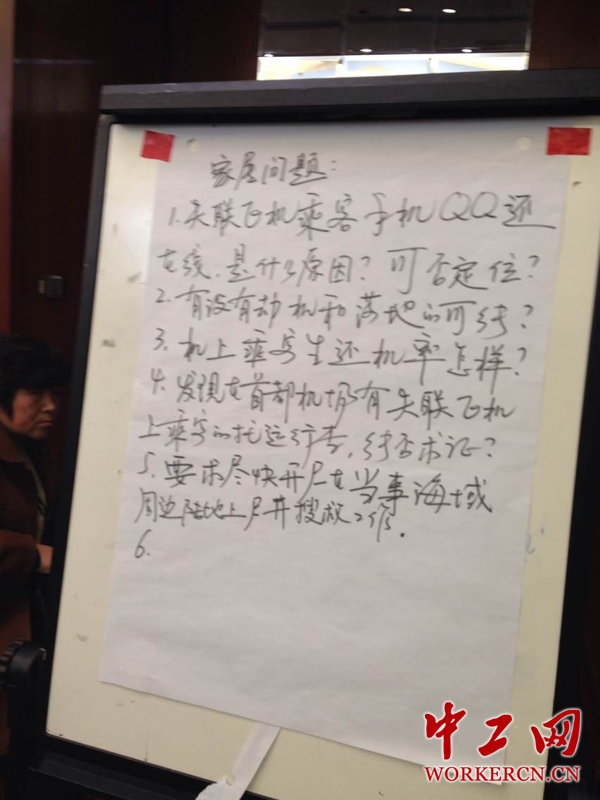 家属问题：
1.失联飞机乘客手机QQ还
在线.是什么原因？可否定位？
2.有没有劫机和落地的可能？
3.机上乘客生还机率怎样？
4.发现在首都机场有失联飞机
上乘客的托运行李，能否求证？
5.要求尽快开展在当事海域
周边陆地上展开搜救工作.
6.
中工网
WORKERCN.CN